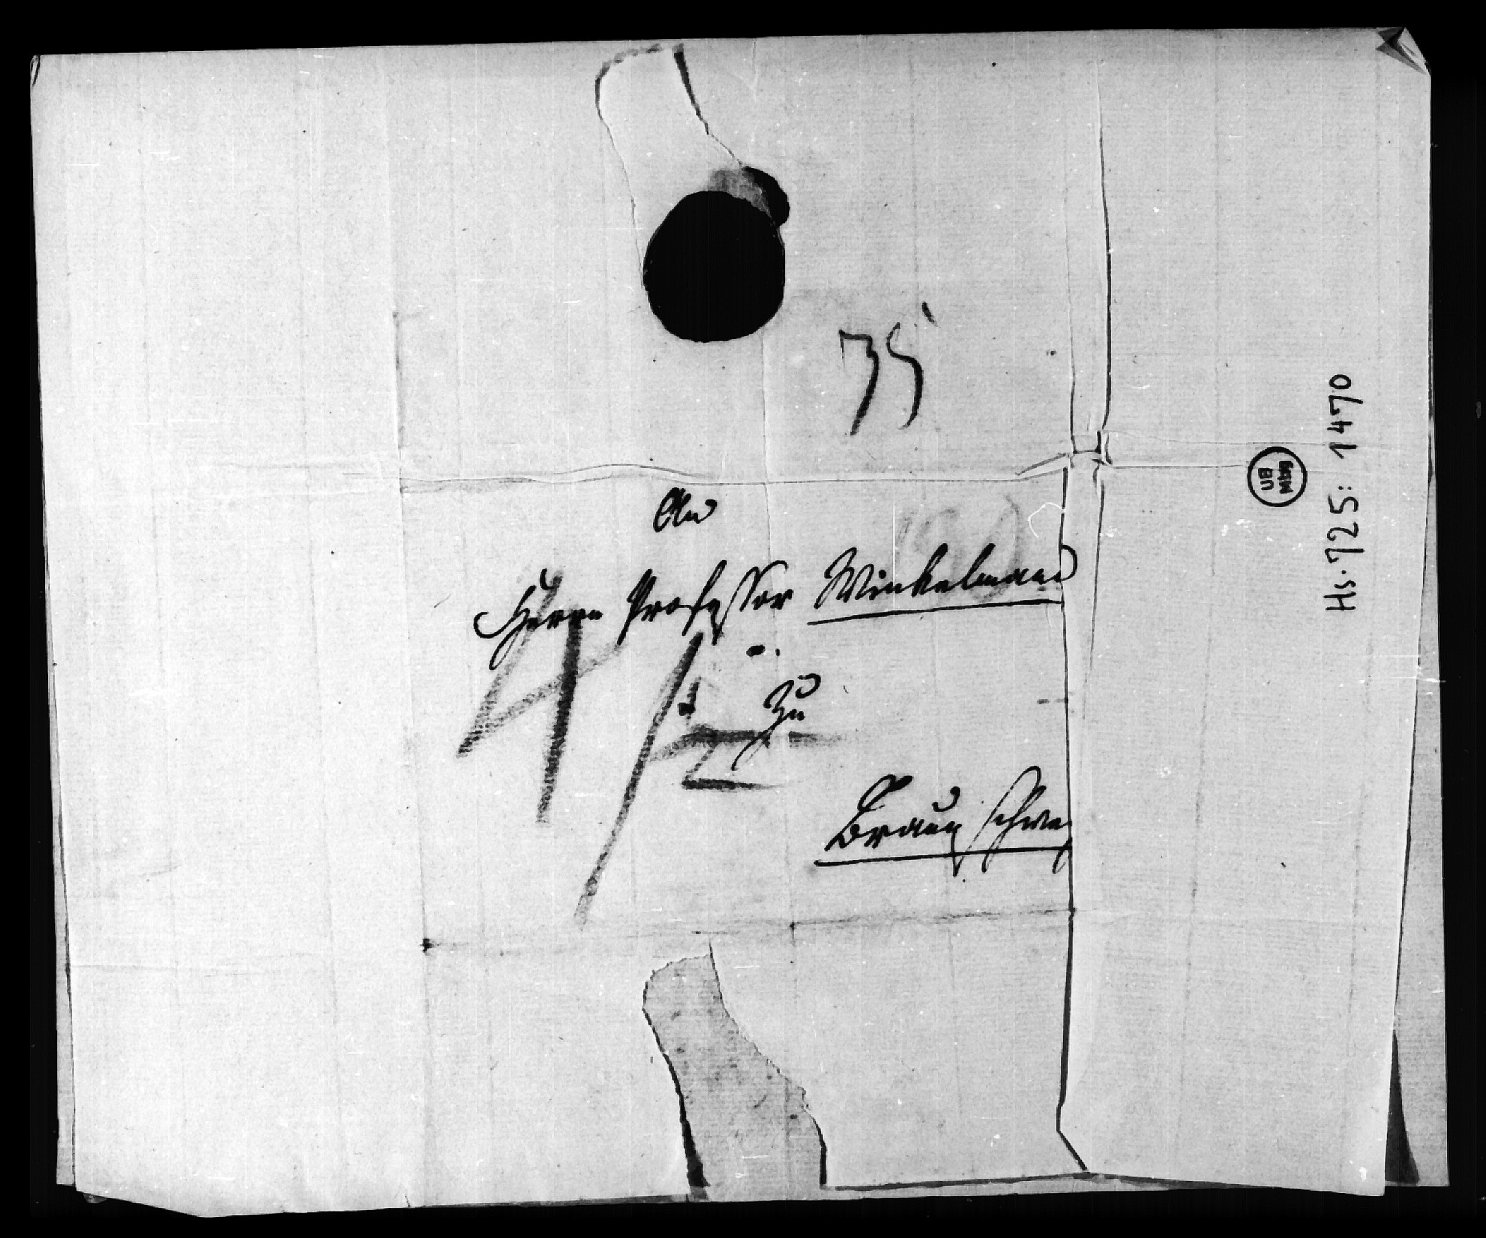 75
An
Herrn Professor Winkelmann
zu
Braunschwei
4/2
Hs. 725: 1470
UB Mbg